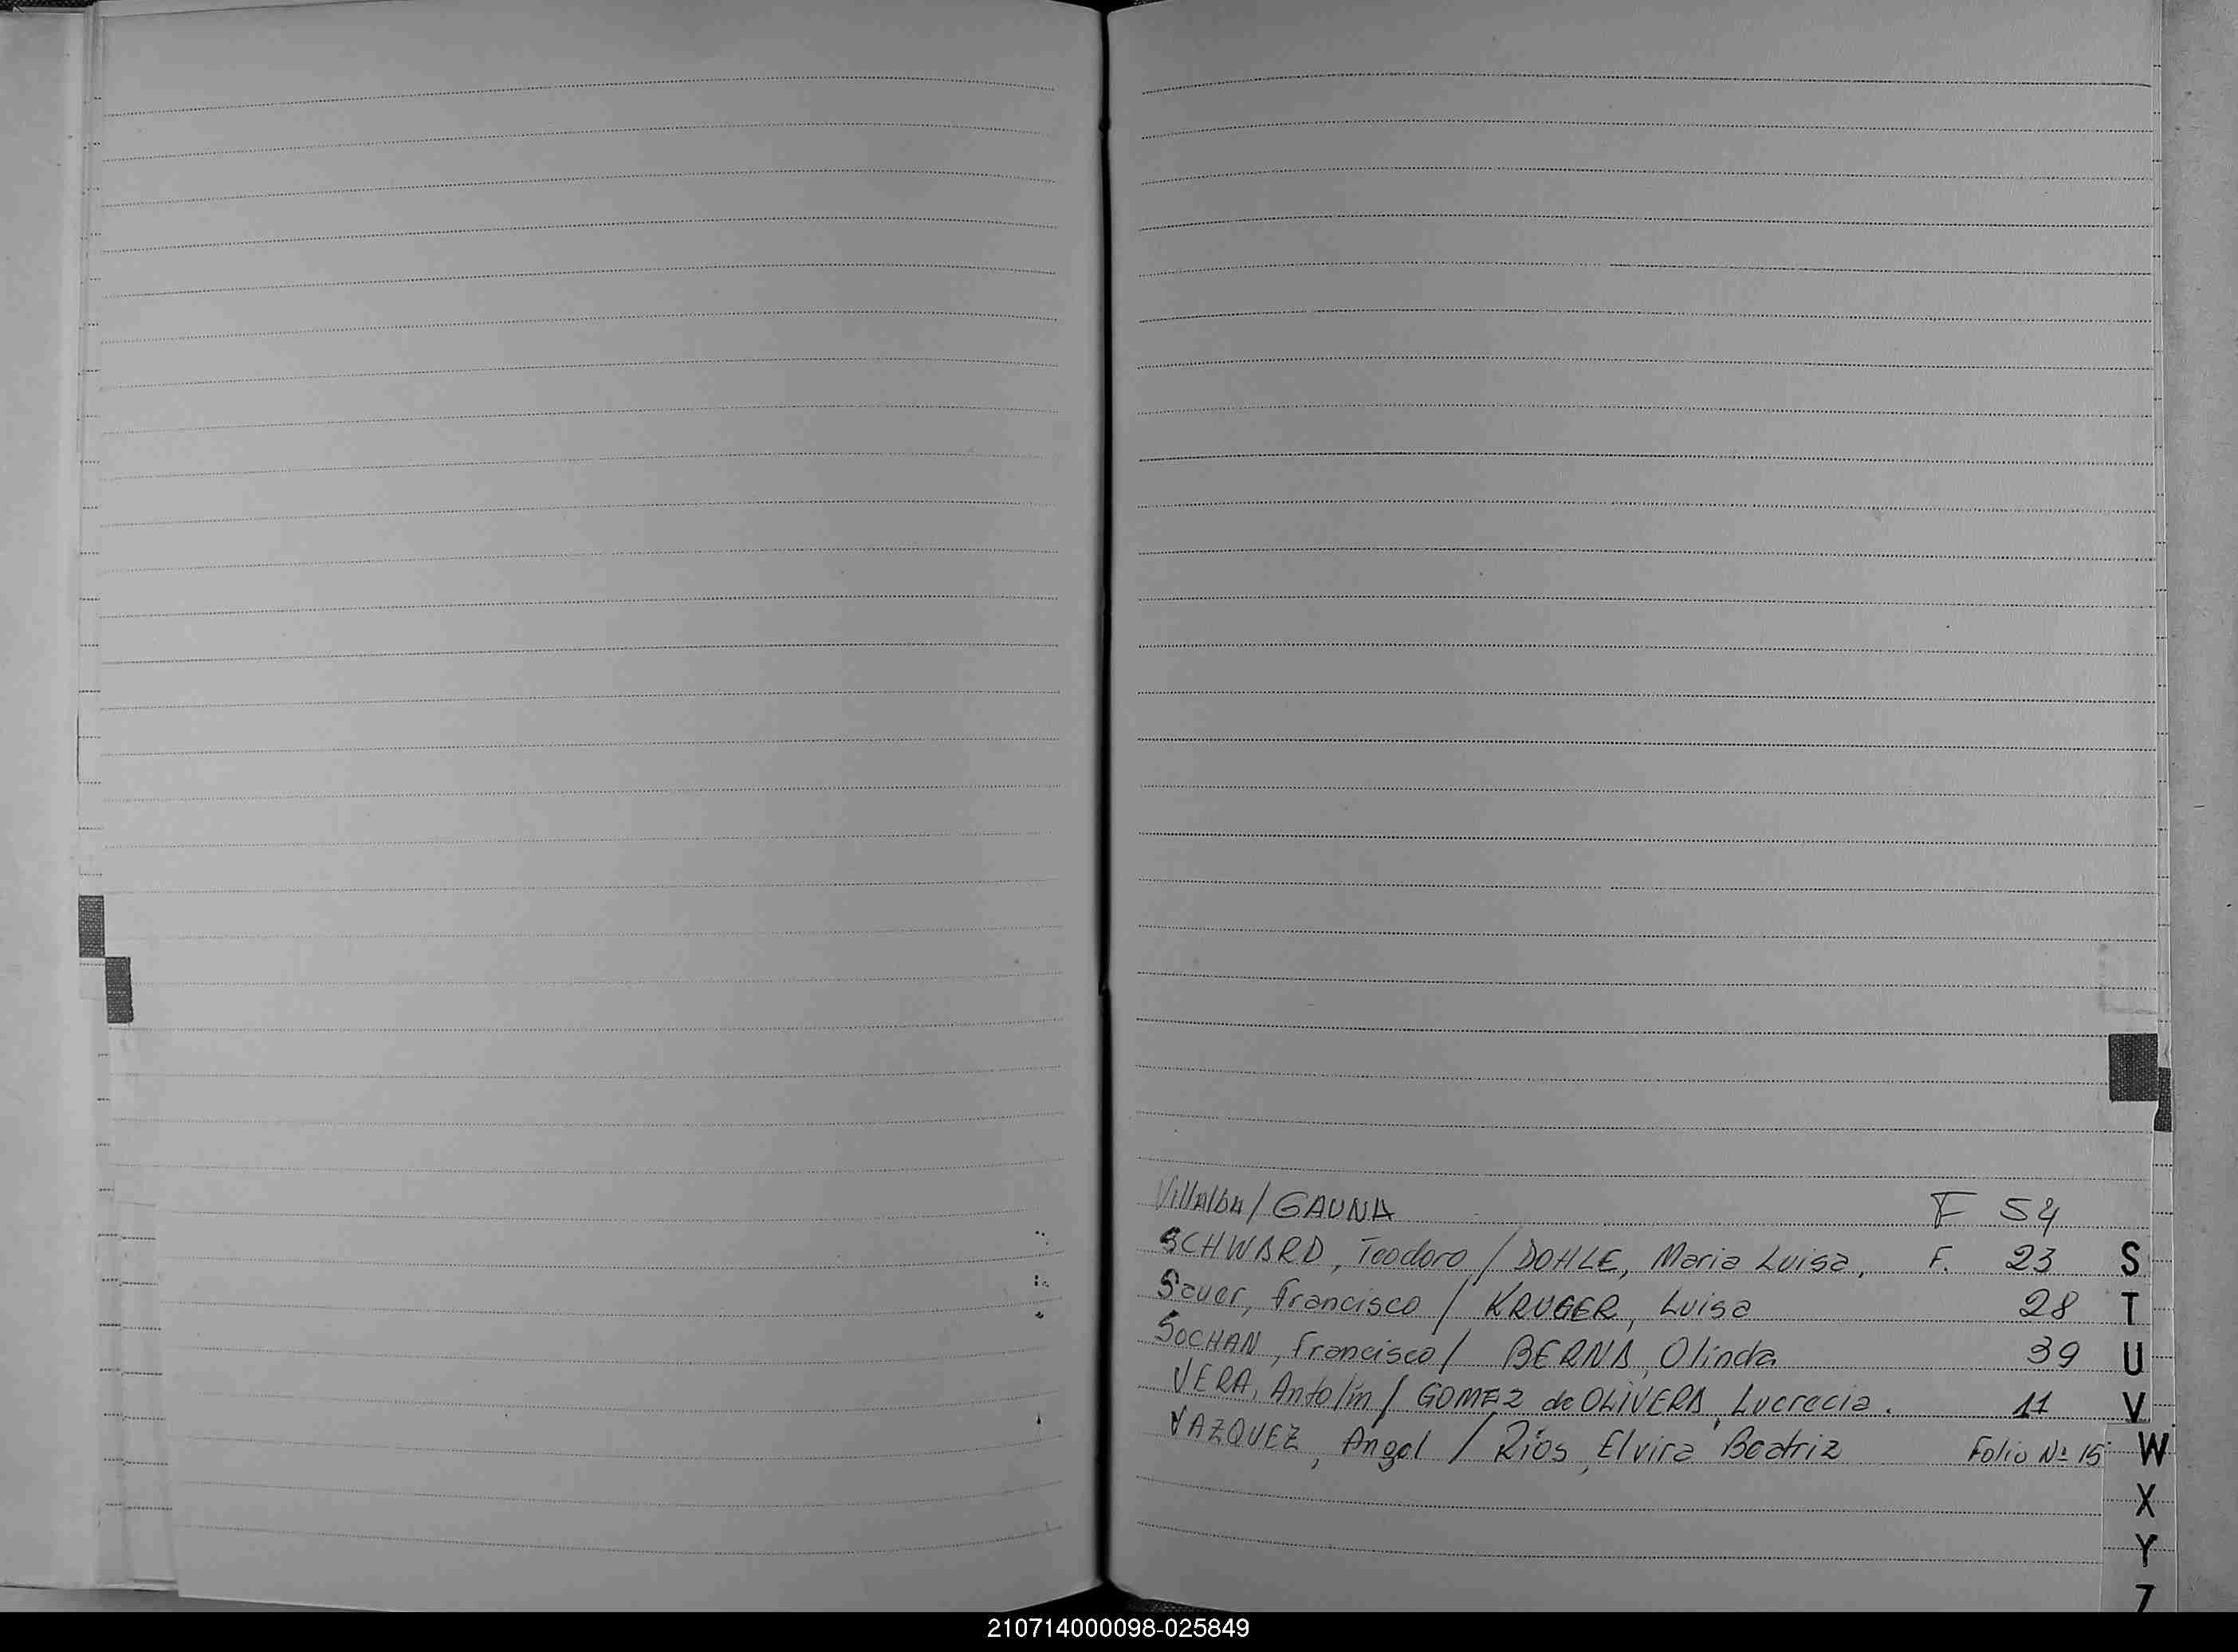 Villalba / GAUNA F 54
SCHWARD, Teodoro / DOHLE, Maria Luisa, F. 23 S
Sauer, Francisco / KRUGER, Luisa 28 T
SOCHAN, Francisco / BERNA, Olinda 39 U
VERA, Antolín / GOMEZ de OLIVERA, Lucrecia. 11 V
VAZQUEZ, Angel / Ríos, Elvira Beatriz Folio Nº 15 W
X
Y
Z
210714000098-025849